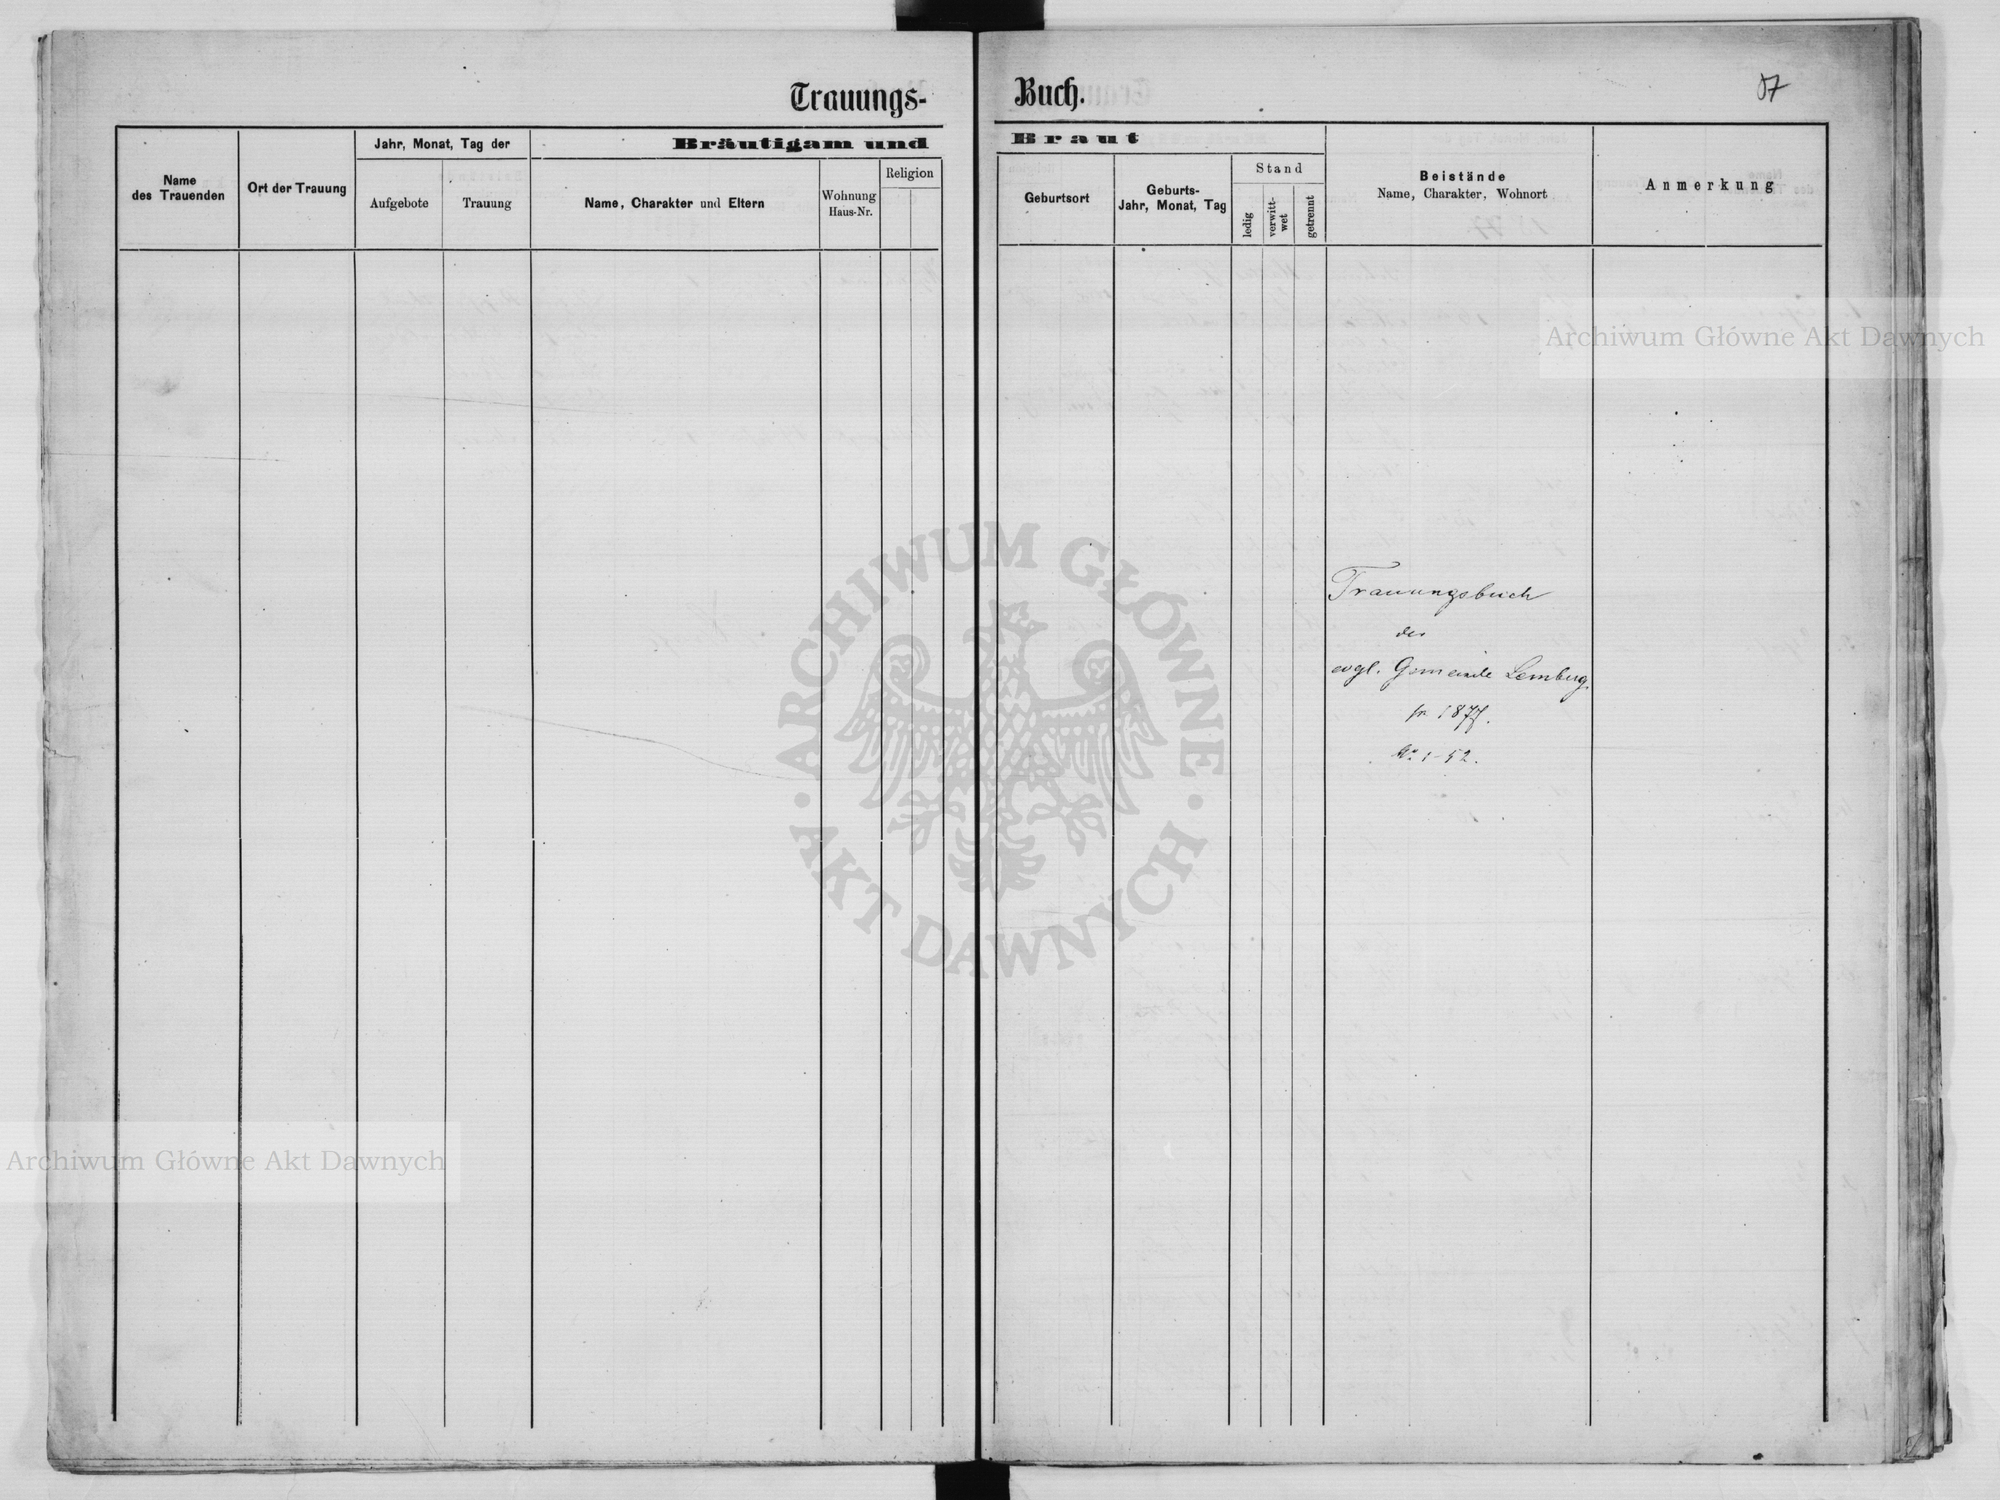 Trauungs-
Buch.
87
Name
des Trauenden
Ort der Trauung
Jahr, Monat, Tag der
Aufgebote
Trauung
Bräutigam und
Name, Charakter und Eltern
Wohnung
Haus-Nr.
Religion
Braut
Geburtsort
Geburts-
Jahr, Monat, Tag
Stand
ledig
verwitt-
wet
getrennt
Beistände
Name, Charakter, Wohnort
Anmerkung
Archiwum Główne Akt Dawnych
Trauungsbuch
der
evgl. Gemeinde Lemberg
1877.
No 1-52.
ARCHIWUM GŁÓWNE
AKT DAWNYCH
Archiwum Główne Akt Dawnych